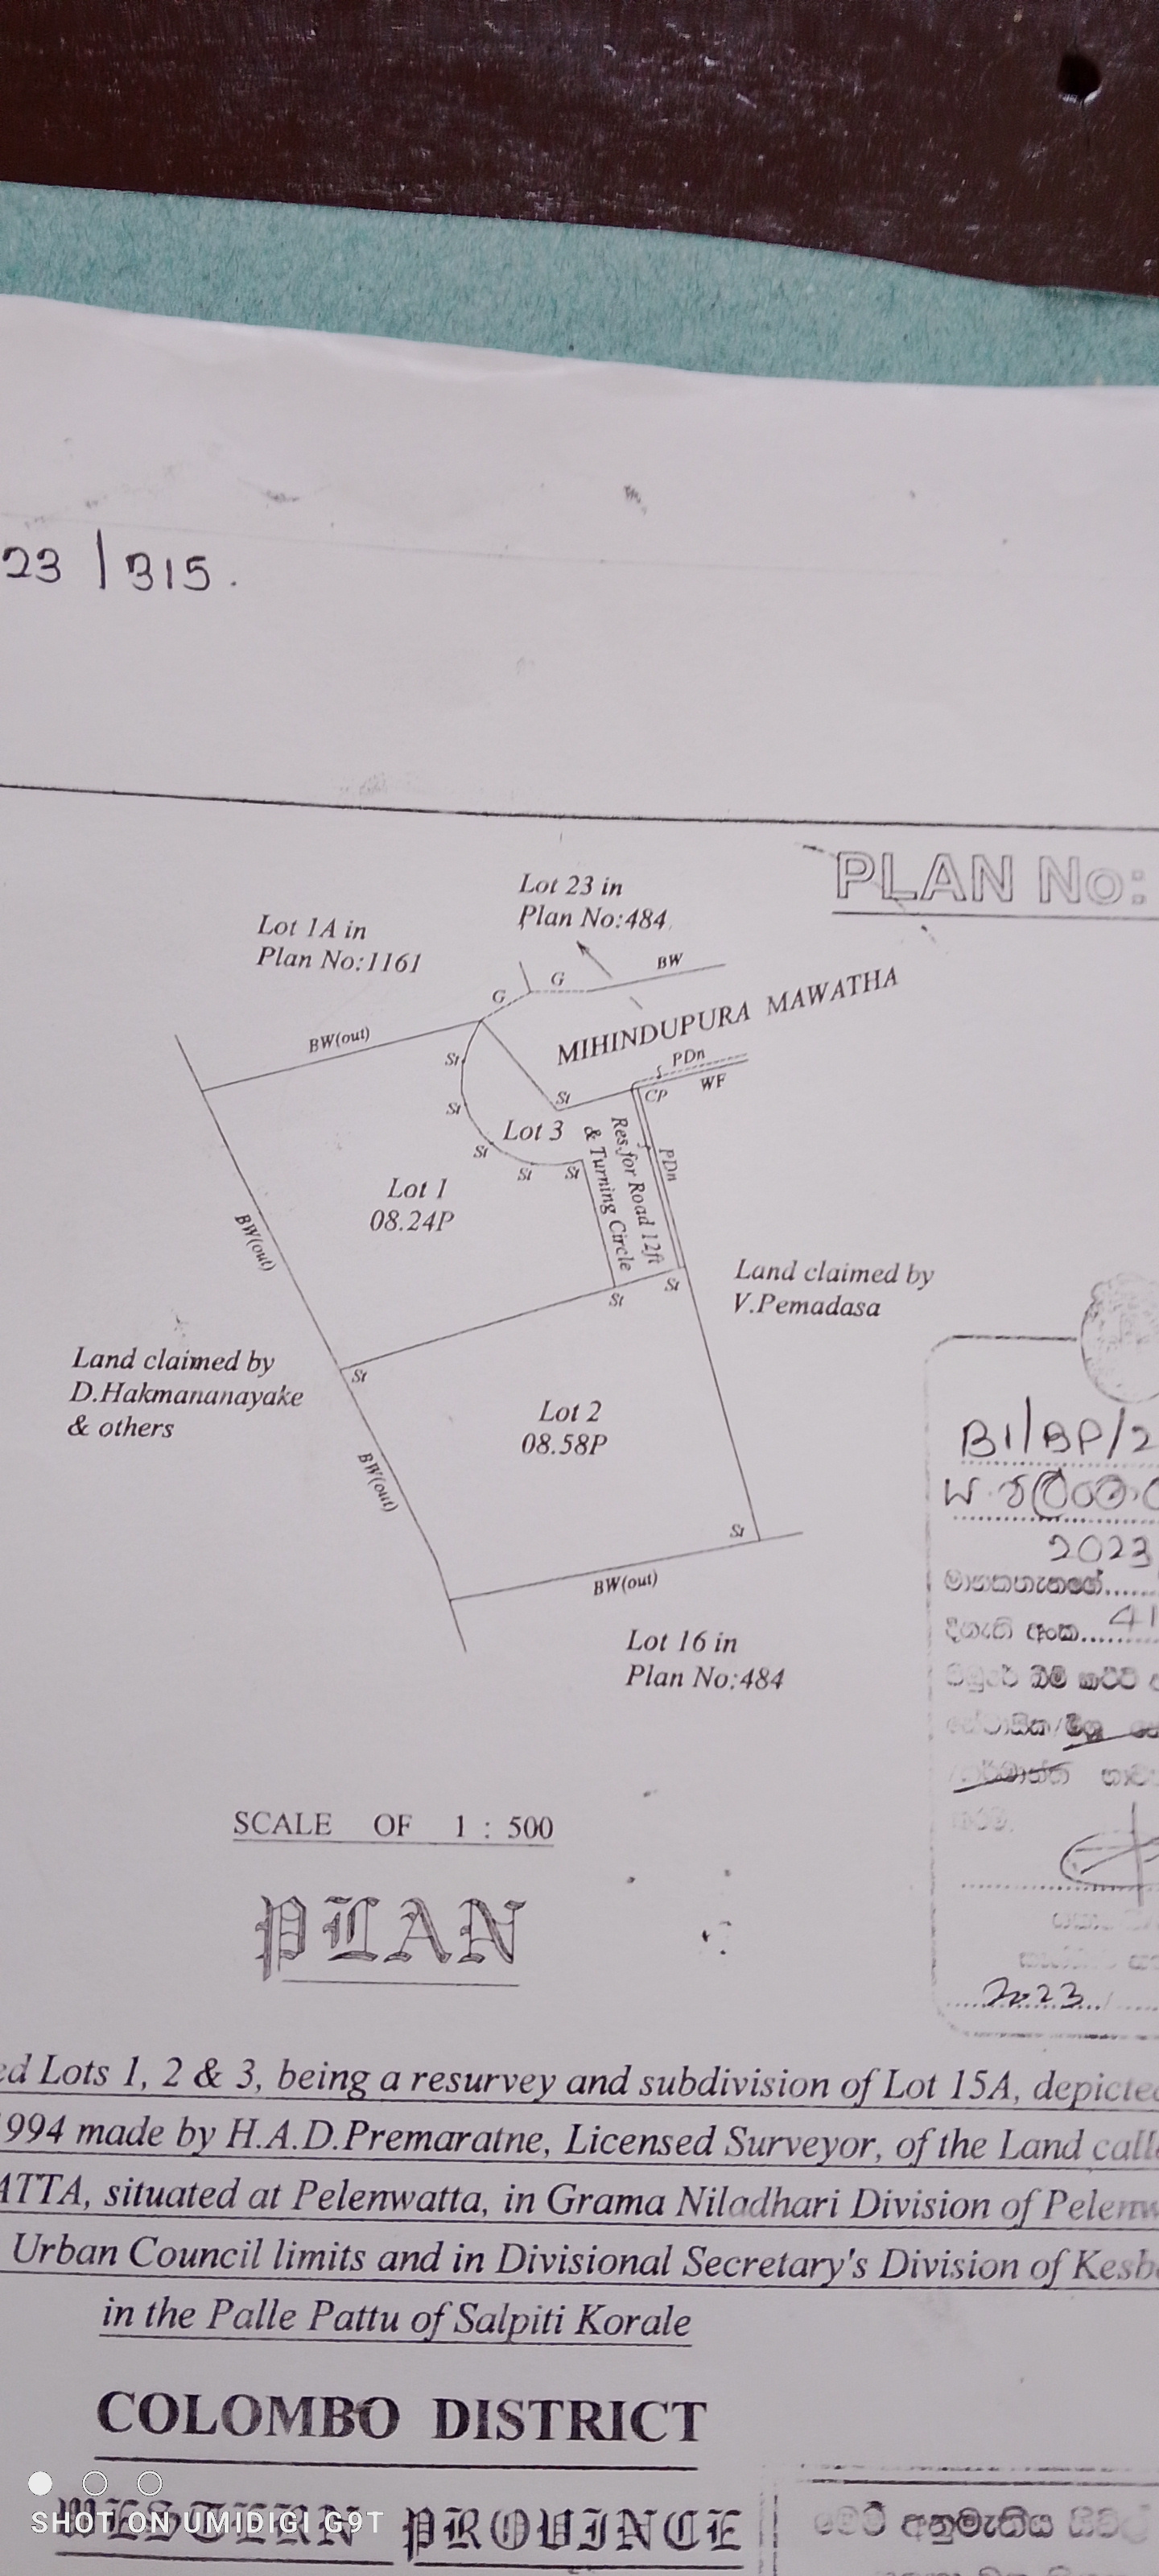 23 / 315.
PLAN No:
Lot 23 in
Plan No:484
Lot 1A in
Plan No:1161
BW
G
G
MIHINDUPURA MAWATHA
BW(out)
PDn
WF
CP
St
St
St
St
St
St
Lot 3
Res.for Road 12ft
& Turning Circle
PDn
Lot 1
08.24P
BW(out)
St
St
Land claimed by
V.Pemadasa
Land claimed by
D.Hakmananayake
& others
St
Lot 2
08.58P
BW(out)
St
BW(out)
Lot 16 in
Plan No:484
B1/BP/2
2023
අංක 41
2023
SCALE OF 1 : 500
PLAN
ed Lots 1, 2 & 3, being a resurvey and subdivision of Lot 15A, depicted
1994 made by H.A.D.Premaratne, Licensed Surveyor, of the Land calle
ATTA, situated at Pelenwatta, in Grama Niladhari Division of Pelenw
Urban Council limits and in Divisional Secretary's Division of Kesb
in the Palle Pattu of Salpiti Korale
COLOMBO DISTRICT
WESTERN PROVINCE
අනුමැතිය
SHOT ON UMIDIGI G9T